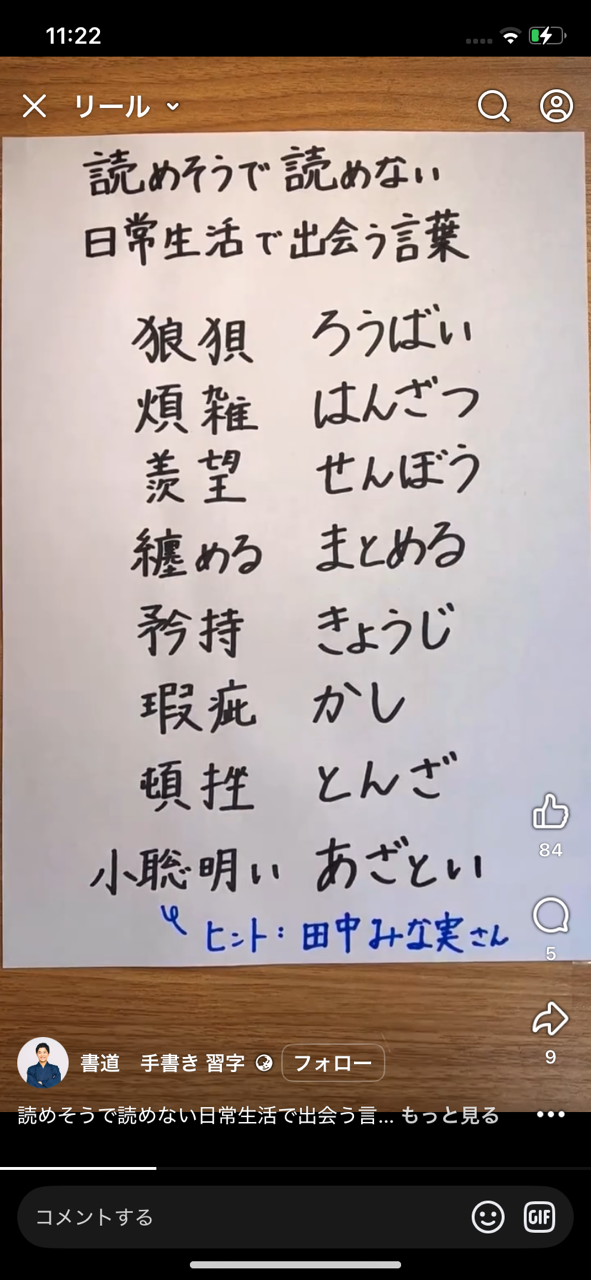 11:22
リール
読めそうで読めない
日常生活で出会う言葉
狼狽 ろうばい
煩雑 はんざつ
羨望 せんぼう
纏める まとめる
矜持 きょうじ
瑕疵 かし
頓挫 とんざ
小聡明い あざとい
ヒント：田中みな実さん
84
5
9
書道 手書き 習字 フォロー
読めそうで読めない日常生活で出会う言… もっと見る
コメントする
GIF